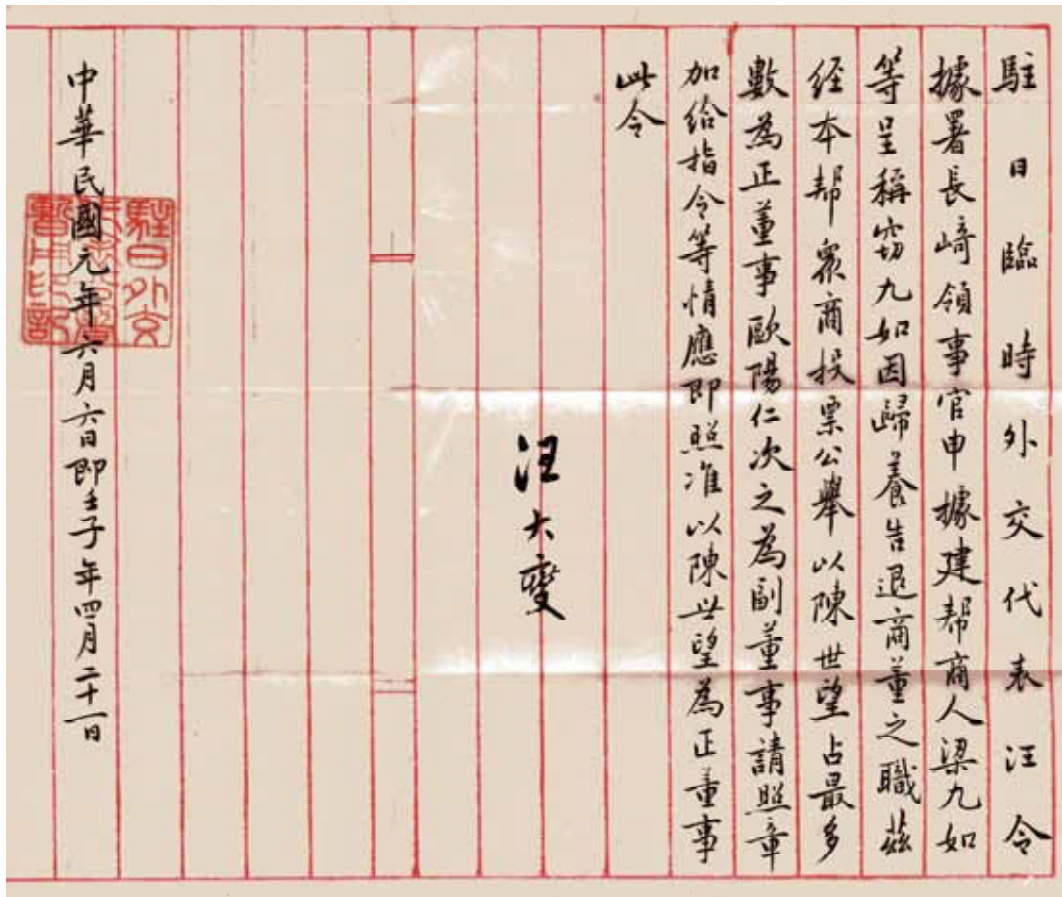 駐日臨時外交代表汪令
據署長﨑領事官申據建帮商人梁九如
等呈稱窃九如因歸養告退商董之職茲
经本帮眾商投票公舉以陳世望占最多
數為正董事歐陽仁次之為副董事請照章
加给指令等情應即照准以陳世望為正董事
此令
汪大燮
中華民國元年六月六日即壬子年四月二十一日
駐日外交
代表
暫用印記